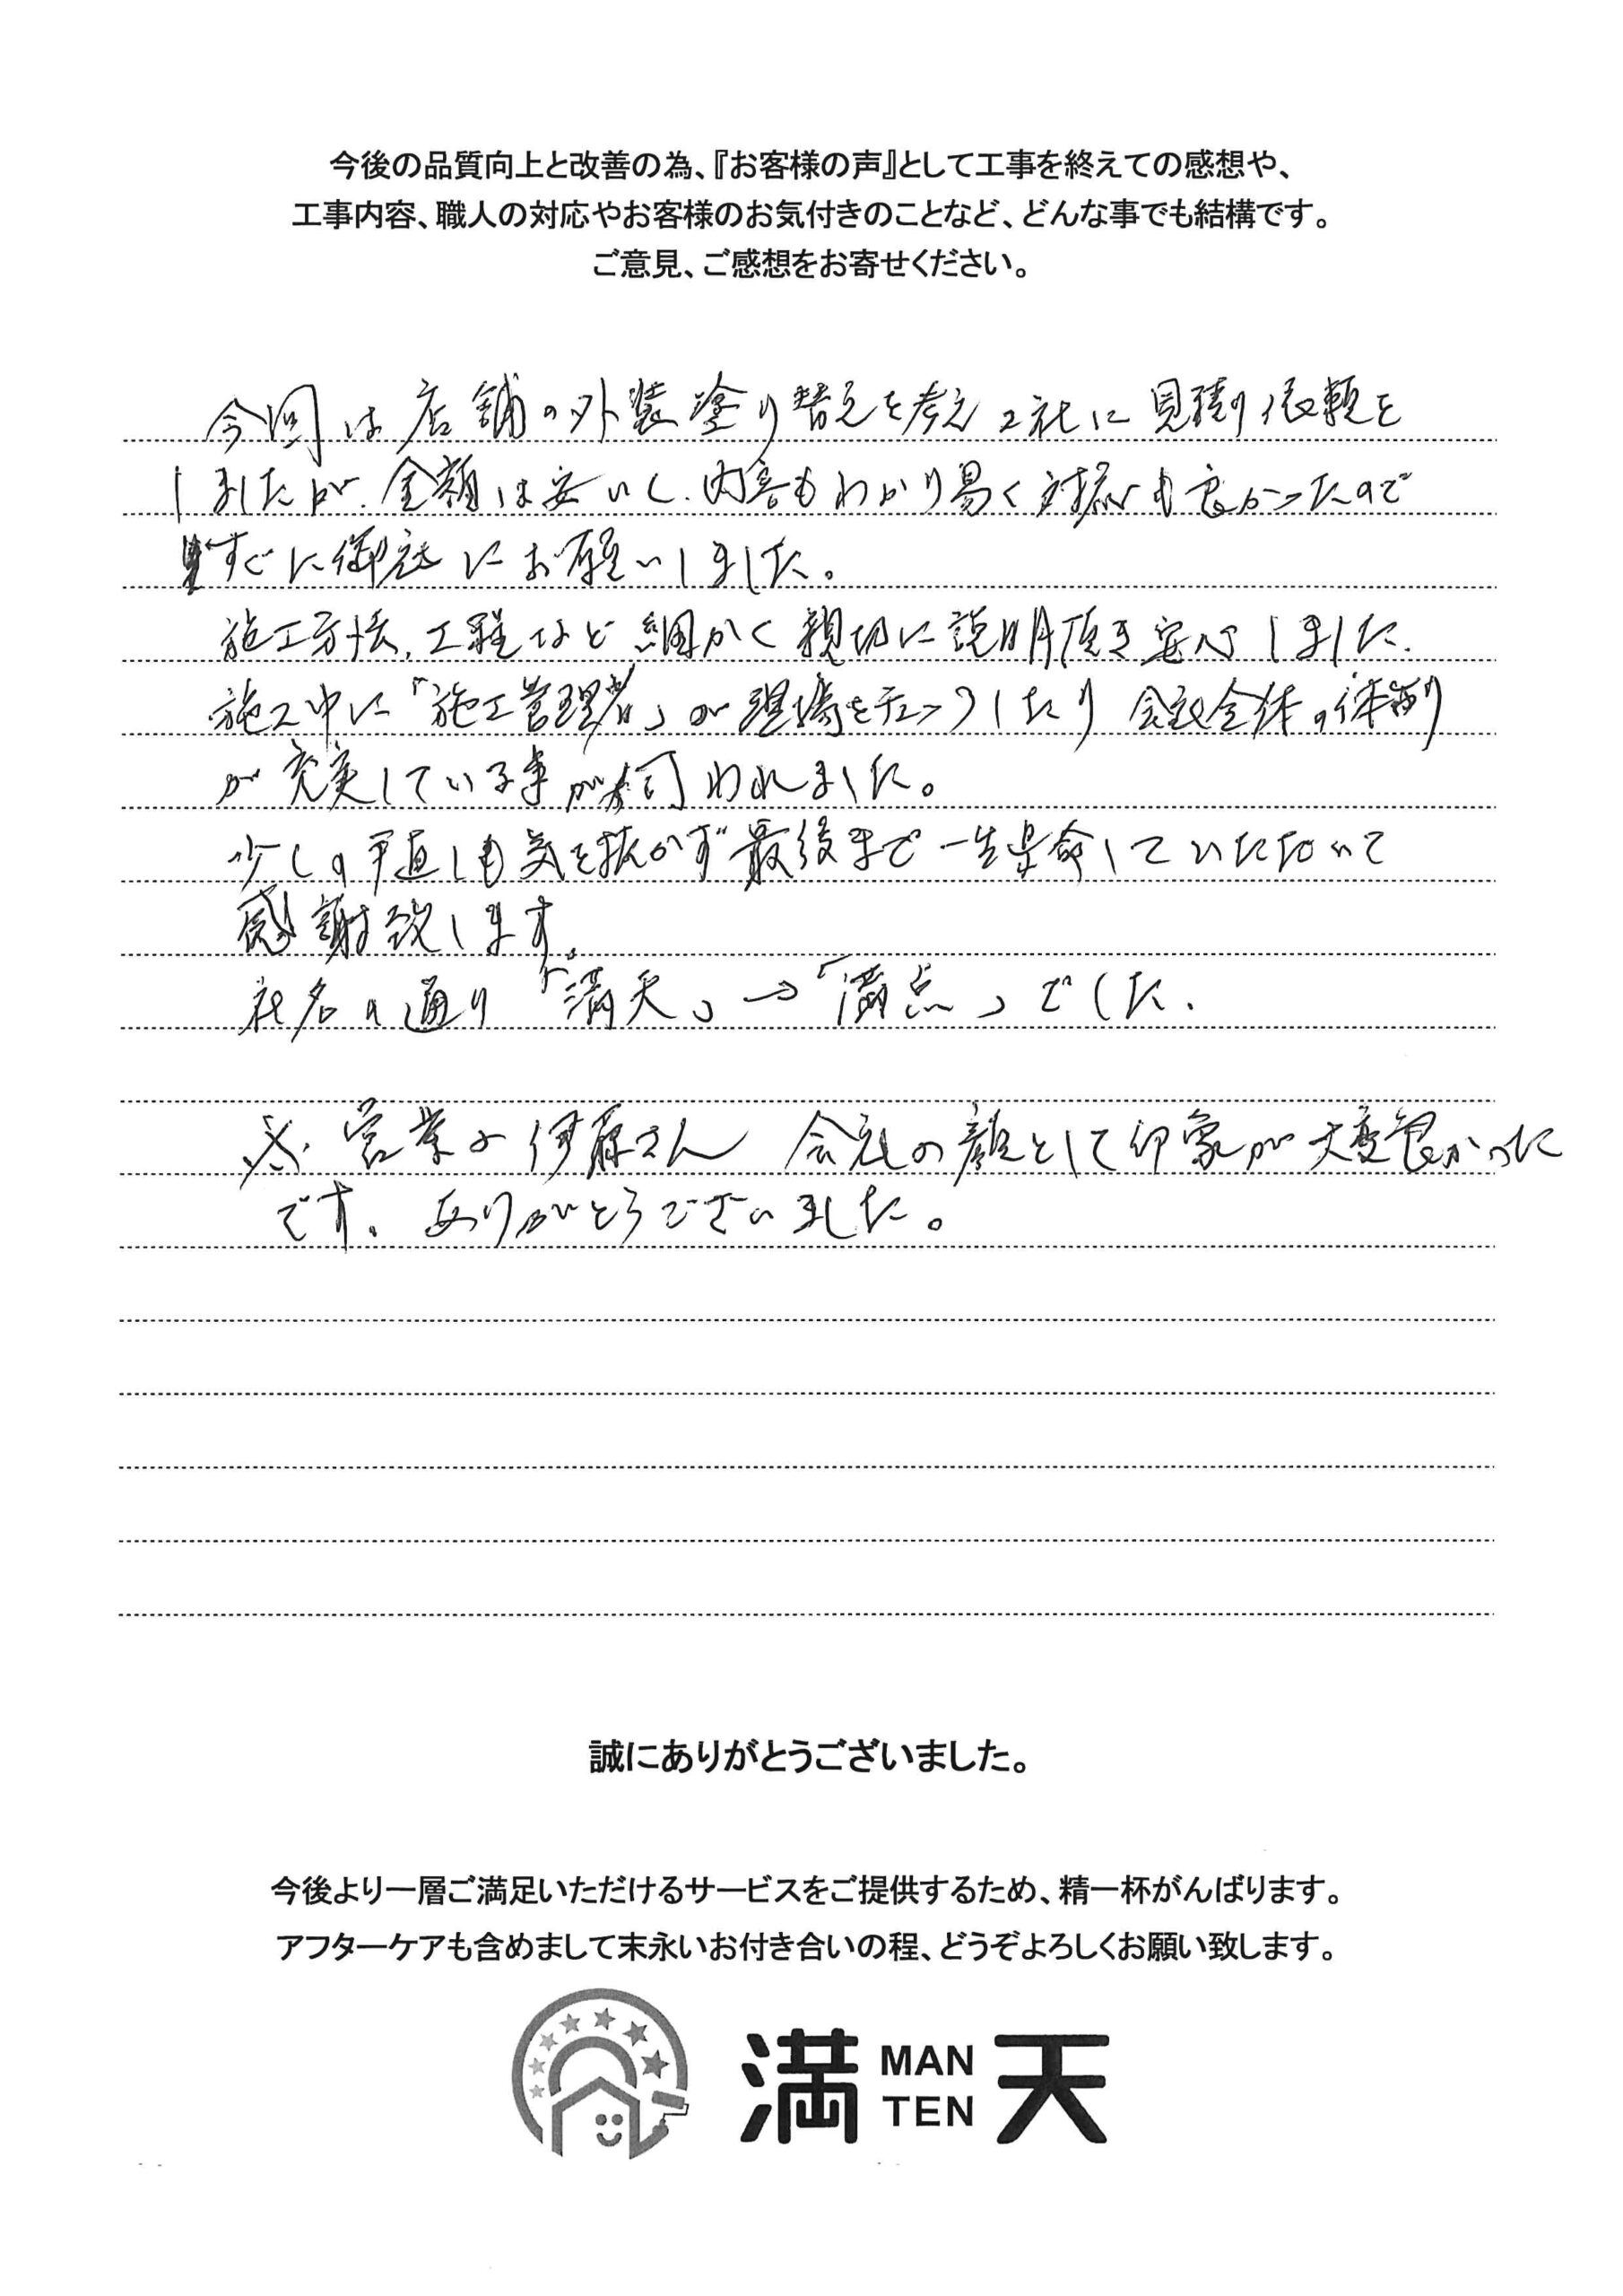 今後の品質向上と改善の為、『お客様の声』として工事を終えての感想や、
工事内容、職人の対応やお客様のお気付きのことなど、どんな事でも結構です。
ご意見、ご感想をお寄せください。
今回は店舗の外装塗り替えを考え2社に見積り依頼を
しましたが、金額は安いし、内容もわかり易く対応も良かったので
すぐに御社にお願いしました。
施工方法、工程など細かく親切に説明頂き安心しました。
施工中に「施工管理者」が現場をチェックしたり会社全体の体制
が充実している事が伺われました。
少しの手直しも気を抜かず最後まで一生県命していただいて
感謝致します。
社名の通り「満天」→「満点」でした。
※営業の伊藤さん 会社の顔として印象が大変良かった
です。ありがとうございました。
誠にありがとうございました。
今後より一層ご満足いただけるサービスをご提供するため、精一杯がんばります。
アフターケアも含めまして末永いお付き合いの程、どうぞよろしくお願い致します。
満 MAN TEN 天